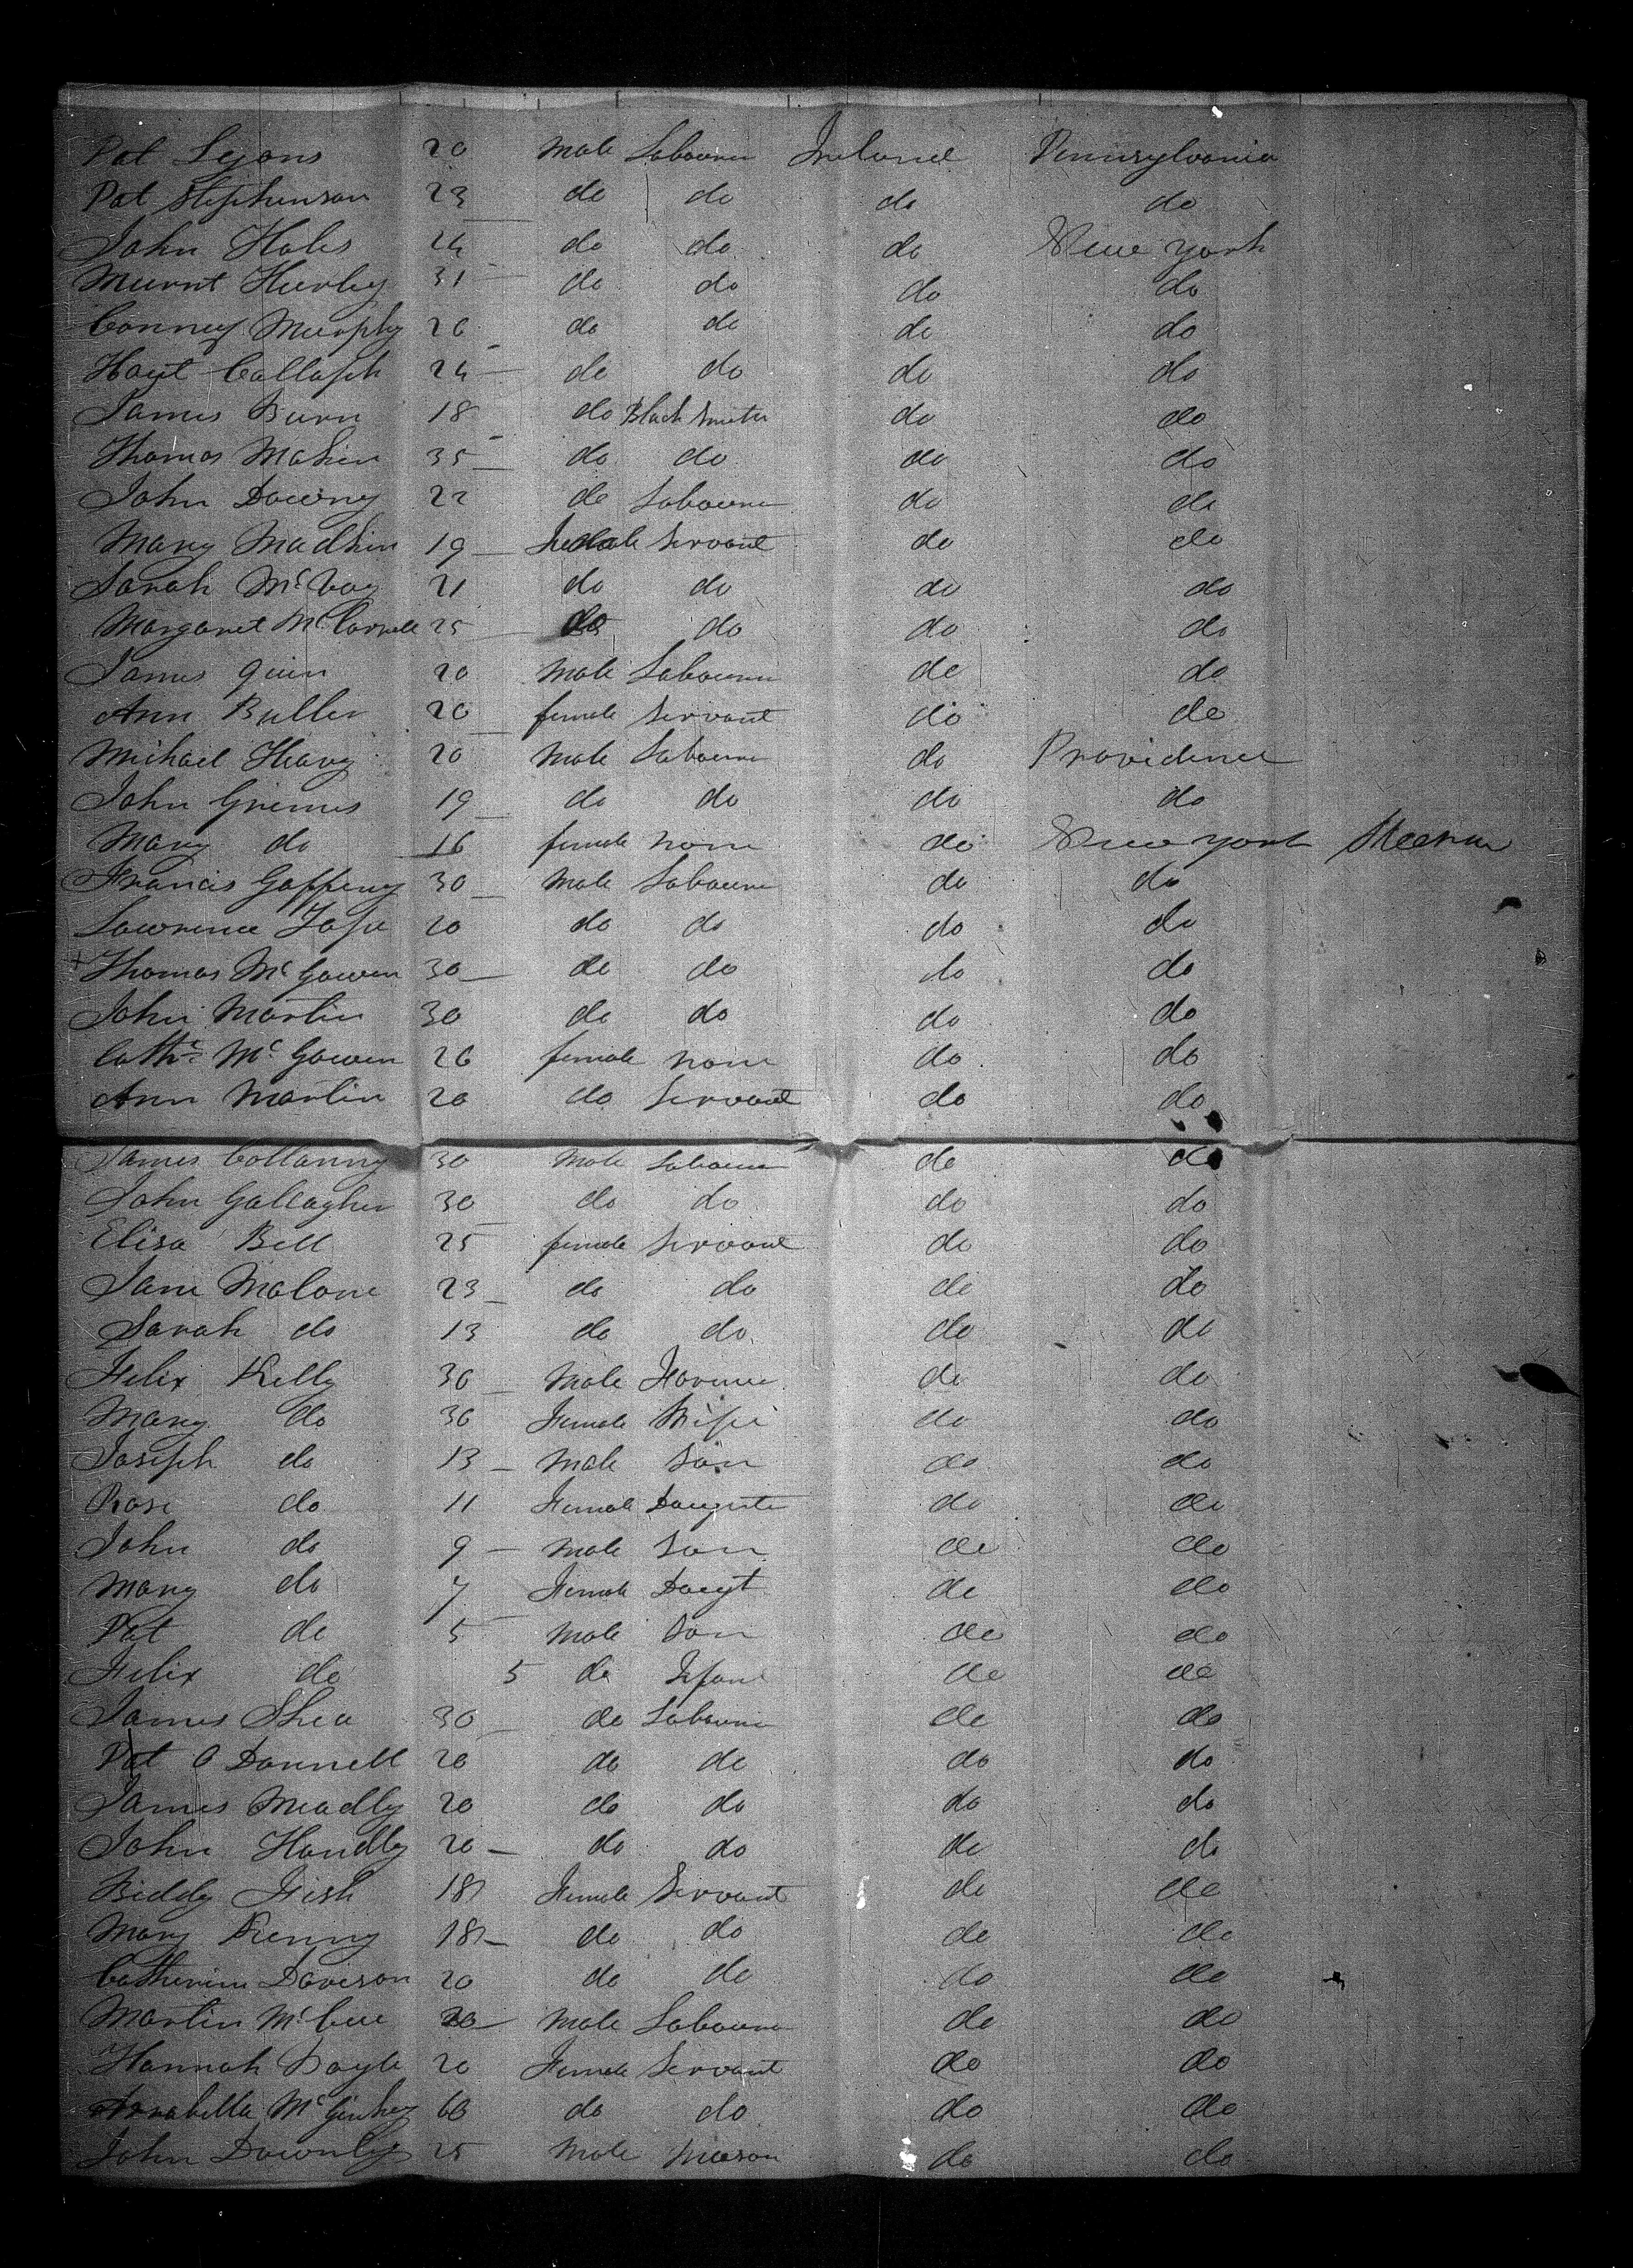 Pat Lyons 20 Male Labourer Ireland Pennsylvania
Pat Stephenson 23 do do do do
John Hales 24 do do do New York
Murnt Hurley 31 do do do do
Conney Murphy 26 do do do do
Callaph 24 do do do do
James Burn 18 do Black Smith do do
Thomas Makin 35 do do do do
John Downy 22 do Labourer do do
Mary Madkin 19 Female Servant do do
Sarah McVay 21 do do do do
Margaret 25 do do do do
James Quin 20 Male Labourer do do
Ann Buller 20 female Servant do do
Michael Heavy 20 Male Labourer do Providence
John Griemes 19 do do do do
Mary do 16 female none do New York
Francis Gaffeny 30 Male Labourer do do
Lawrence 20 do do do do
Thomas Mc Gowen 30 do do do do
John Martin 30 do do do do
Cathe Mc Gowen 26 female none do do
Ann Martin 20 do Servant do do
James 30 Male Labourer do do
John Gallagher 30 do do do do
Elisa Bell 25 female Servant do do
Jane Malone 23 do do do do
Sarah do 13 do do do do
Felix Kelly 36 Male Farmer do do
Mary do 36 Female Wife do do
Joseph do 13 Male Son do do
Rose do 11 Female Daughter do do
John do 9 Male Son do do
Mary do 7 Female Daugt do do
Pat do 5 Male Son do do
Felix do 5 do Infant do do
James Shea 30 do Labourer do do
Pat O Donnell 20 do do do do
James Meadly 20 do do do do
John Handly 20 do do do do
Biddy Fish 18 Female Servant do do
Mary Kenny 18 do do do do
Catherine Daveson 20 do do do do
Martin McCue 20 Male Labourer do do
Hannah Doyle 20 Female Servant do do
Arrabella 60 do do do do
John Downly 25 Male Meason do do